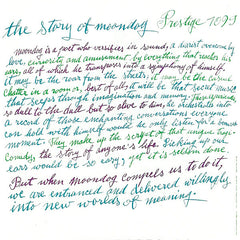 the story of moondog Prestige 7099
moondog is a poet who versifies in sound, a diarist overcome by
love, curiosity and amusement by everything that reaches his
ears, all of which he transposes into a symphony of himself.
it may be the roar from the streets, it may be the casual
chatter in a room or, best of all, it will be that secret music
that seeps through imagination and memory. Themselves
so dull to the dull but so alive to him, he orchestrates into
a record of those enchanting conversations everyone
can hold with himself would he only listen for a bonus
moment. They make up the script of that unique tragi-
comedy, the story of anyone's life. Picking up our
ears would be so easy, yet it is seldom done
But when moondog compels us to do it,
we are entranced and delivered willingly
into new worlds of meaning.